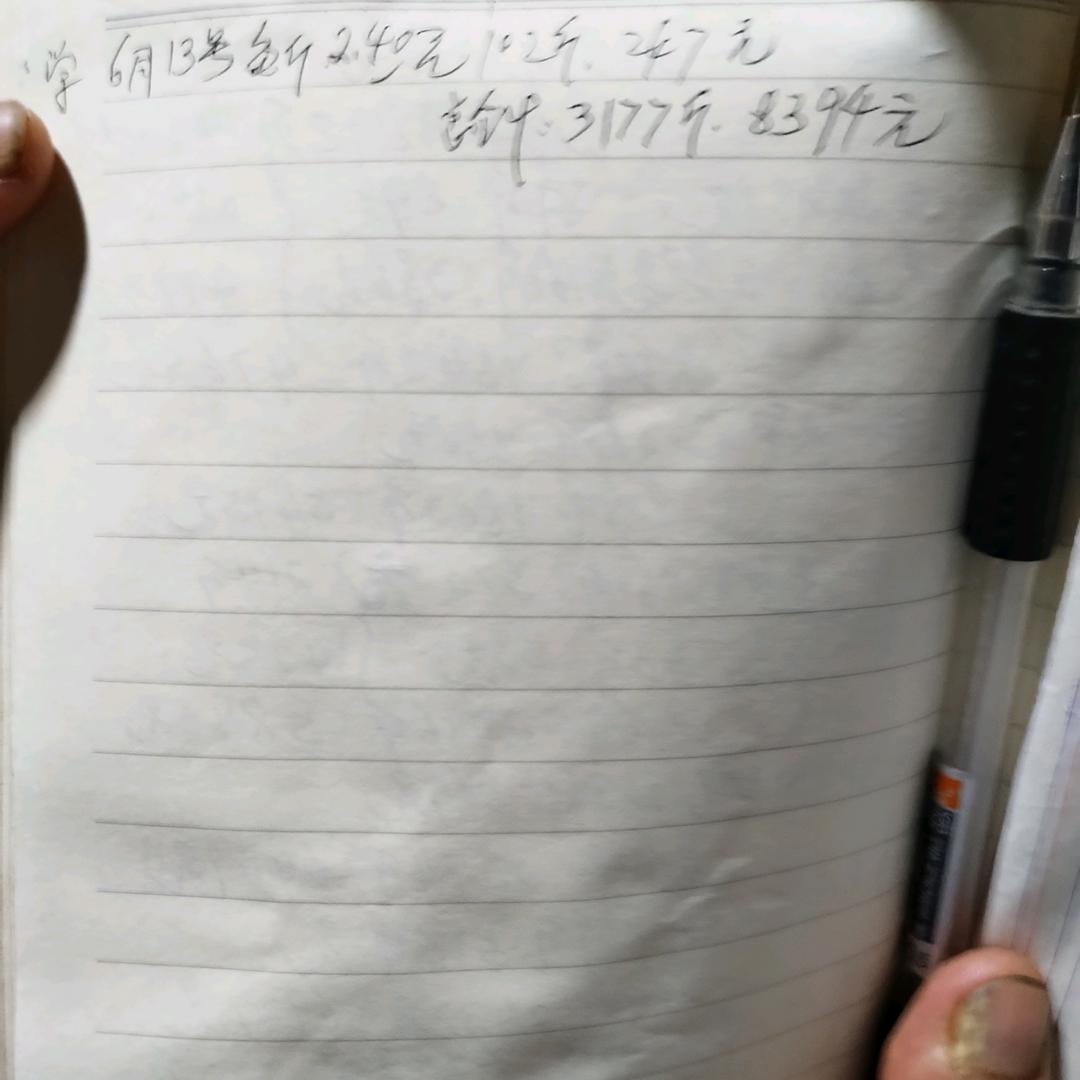 学 6月13号每斤2.40元 102斤. 247元
合计: 3177斤. 8394元